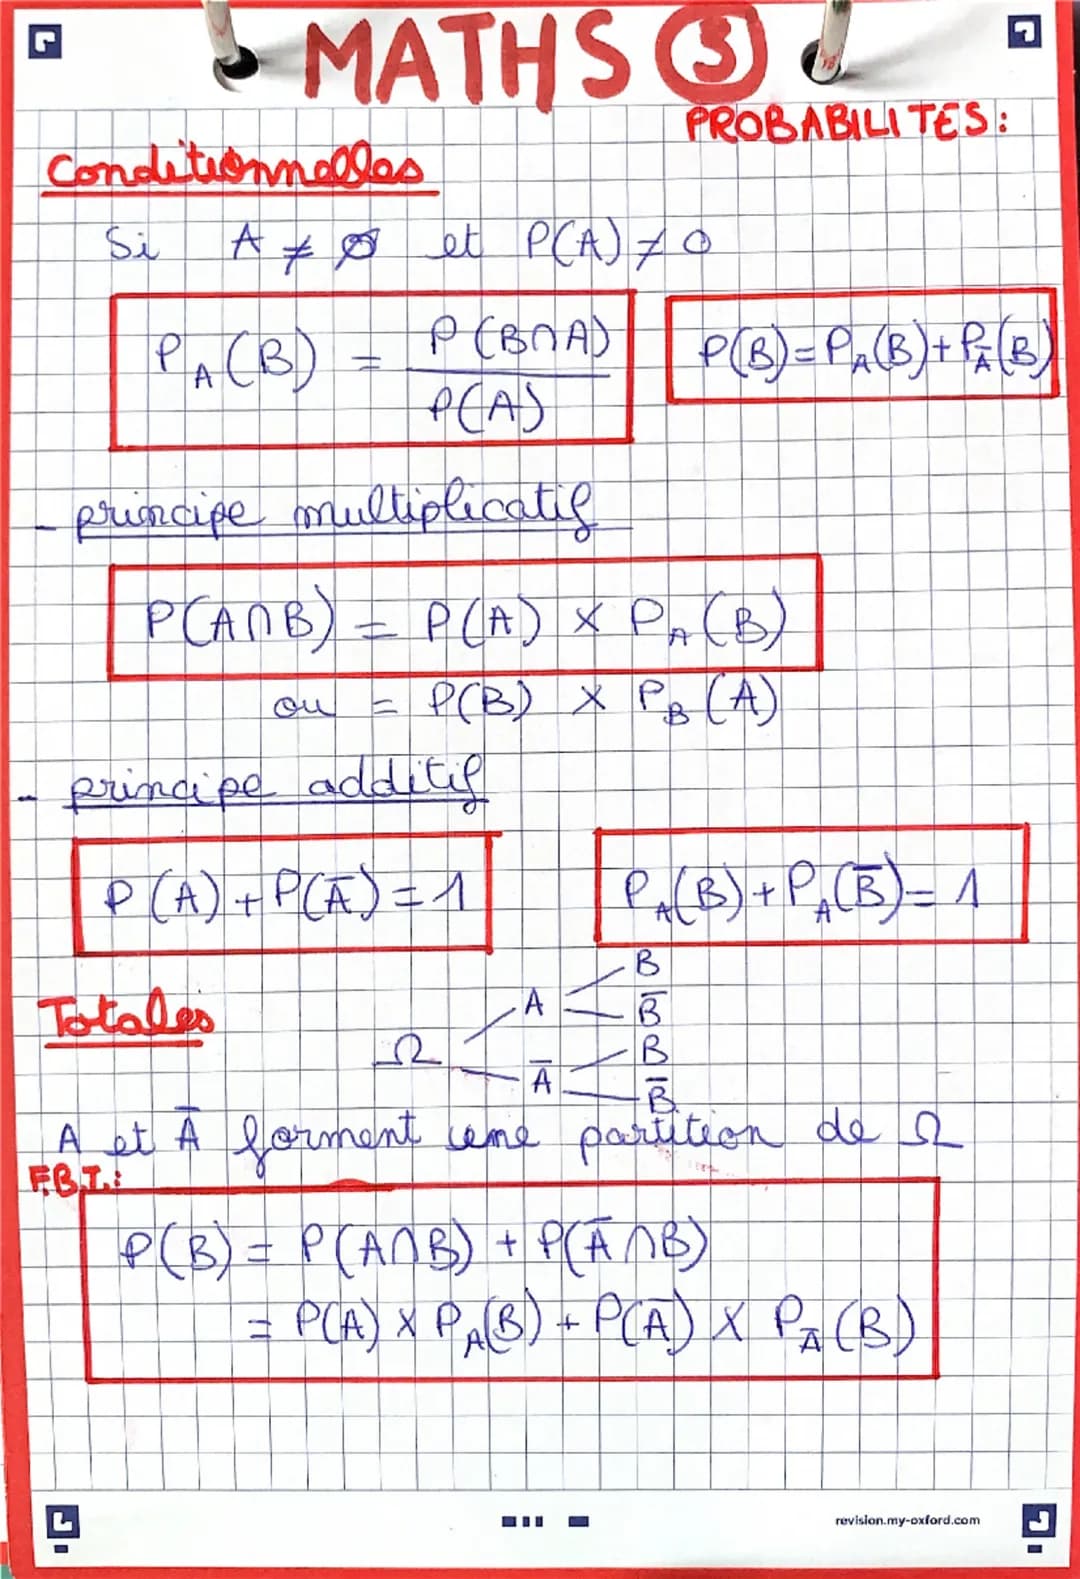 MATHS ③
PROBABILITES:
Conditionnelles
Si A ≠ ∅ et P(A) ≠ 0
P_A(B) = P(B∩A) / P(A)
P(B) = P_A(B) + P_Ā(B)
- principe multiplicatif
P(A∩B) = P(A) × P_A(B)
ou = P(B) × P_B(A)
- principe additif
P(A) + P(Ā) = 1
P_A(B) + P_A(B̄) = 1
Totales
Ω
A
B
B̄
Ā
B
B̄
A et Ā forment une partition de Ω
F.B.I.:
P(B) = P(A∩B) + P(Ā∩B)
= P(A) × P_A(B) + P(Ā) × P_Ā(B)
revision.my-oxford.com